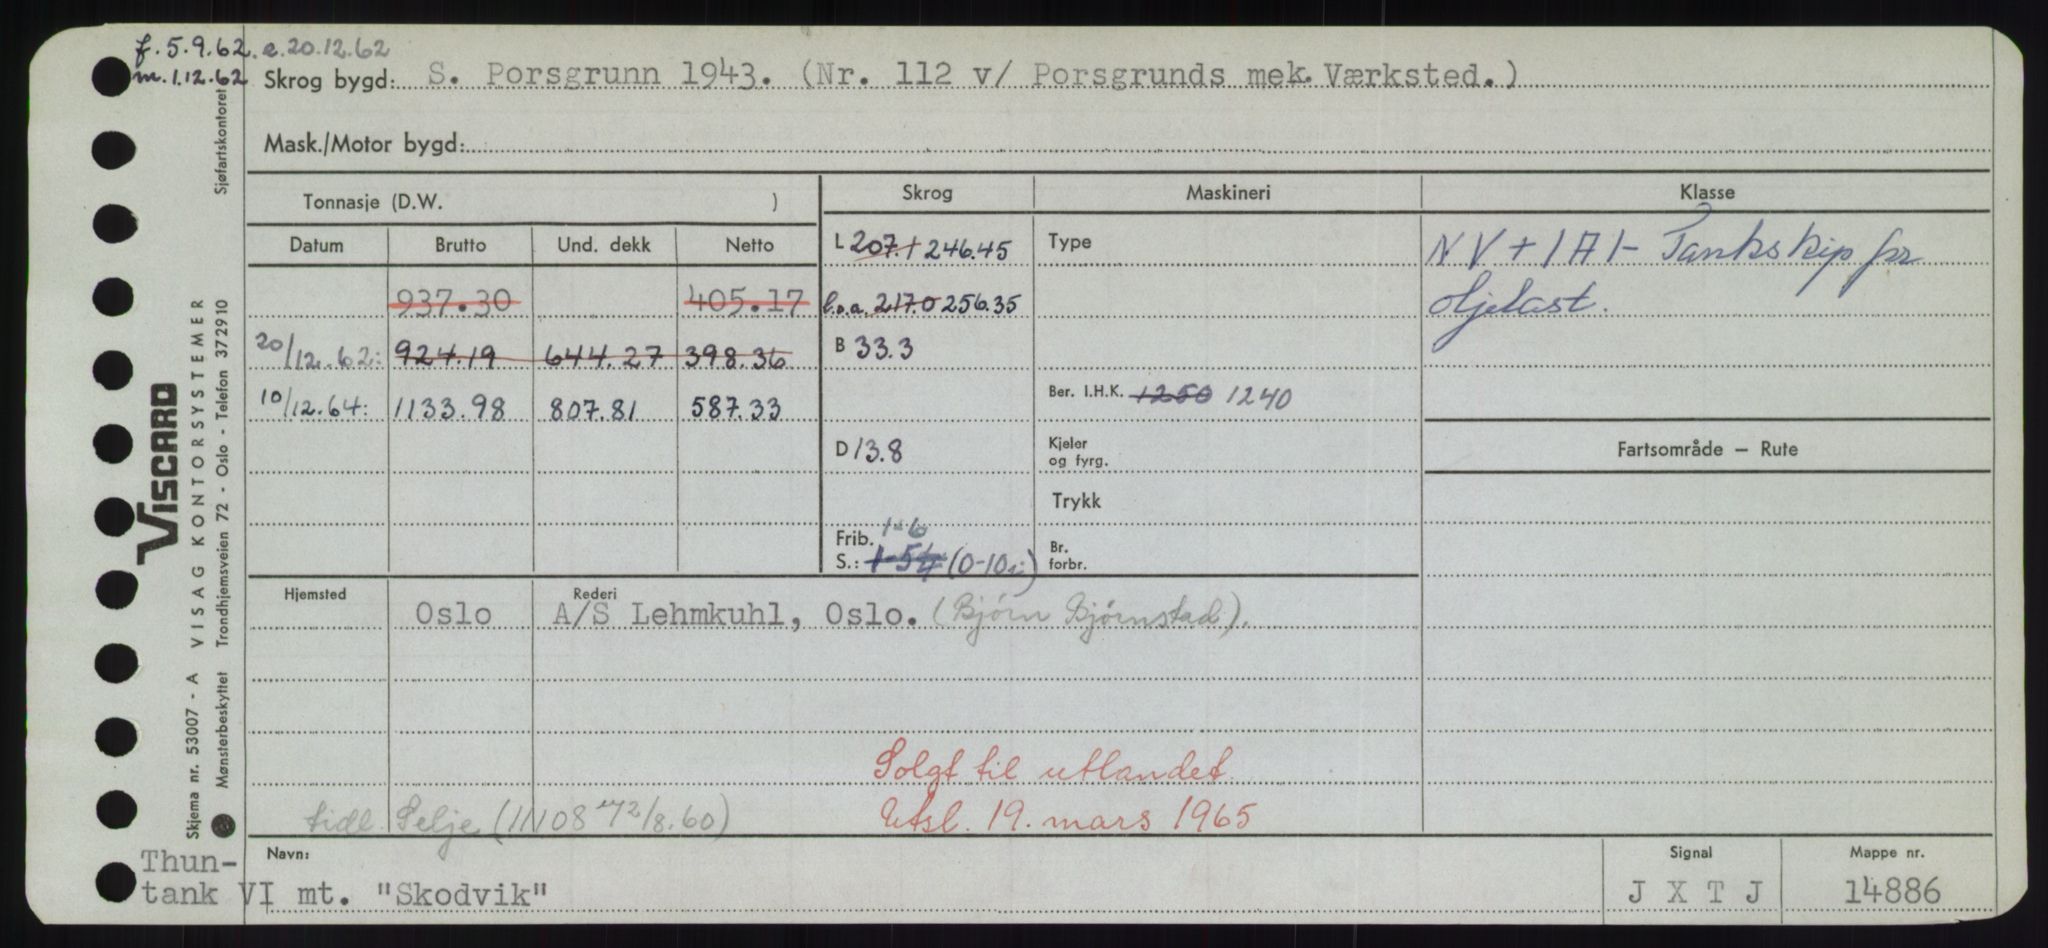 f. 5.9.62. e. 20.12.62
m. 1.12.62
Skrog bygd: S. Porsgrunn 1943. (Nr. 112 v/ Porsgrunds mek. Værksted.)
Mask./Motor bygd:
Tonnasje (D.W. )
Skrog Maskineri Klasse
Datum Brutto Und. dekk Netto
L 207.1 246.45 Type NV + 1A1- Tankskip for
937.30 405.17 l.o.a. 217.0 256.35 Oljelast.
20/12.62: 924.19 644.27 398.36 B 33.3
10/12.64: 1133.98 807.81 587.33 Ber. I.H.K. 1250 1240
D 13.8 Kjeler og fyrg. Fartsområde – Rute
Trykk
Frib. 1-6
S.: 1-5¼ (0-10 ) Br. forbr.
Hjemsted Rederi
Oslo A/S Lehmkuhl, Oslo. (Bjørn Bjørnstad).
Solgt til utlandet.
tidl. Selje (11108 /8.60) Utsl. 19. mars 1965
Navn: Signal Mappe nr.
Thun-
tank VI mt. "Skodvik" J X T J 14886
VISCARD
VISAG KONTORSYSTEMER
Skjema nr. 53007 - A
Mønsterbeskyttet Trondhjemsveien 72 - Oslo - Telefon 372910 Sjøfartskontoret